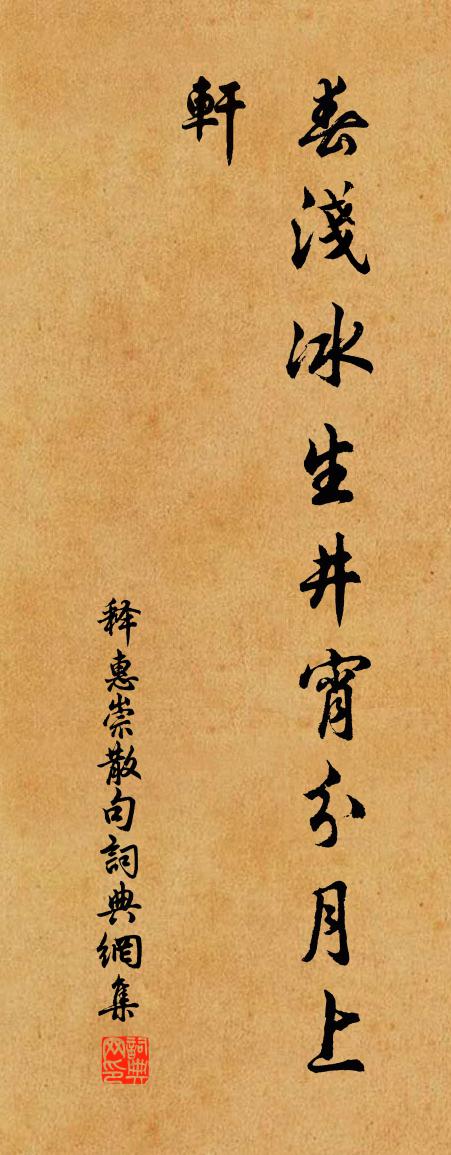 春淺冰生井宵分月上
軒
释惠崇散句詞典網集
詞典網印